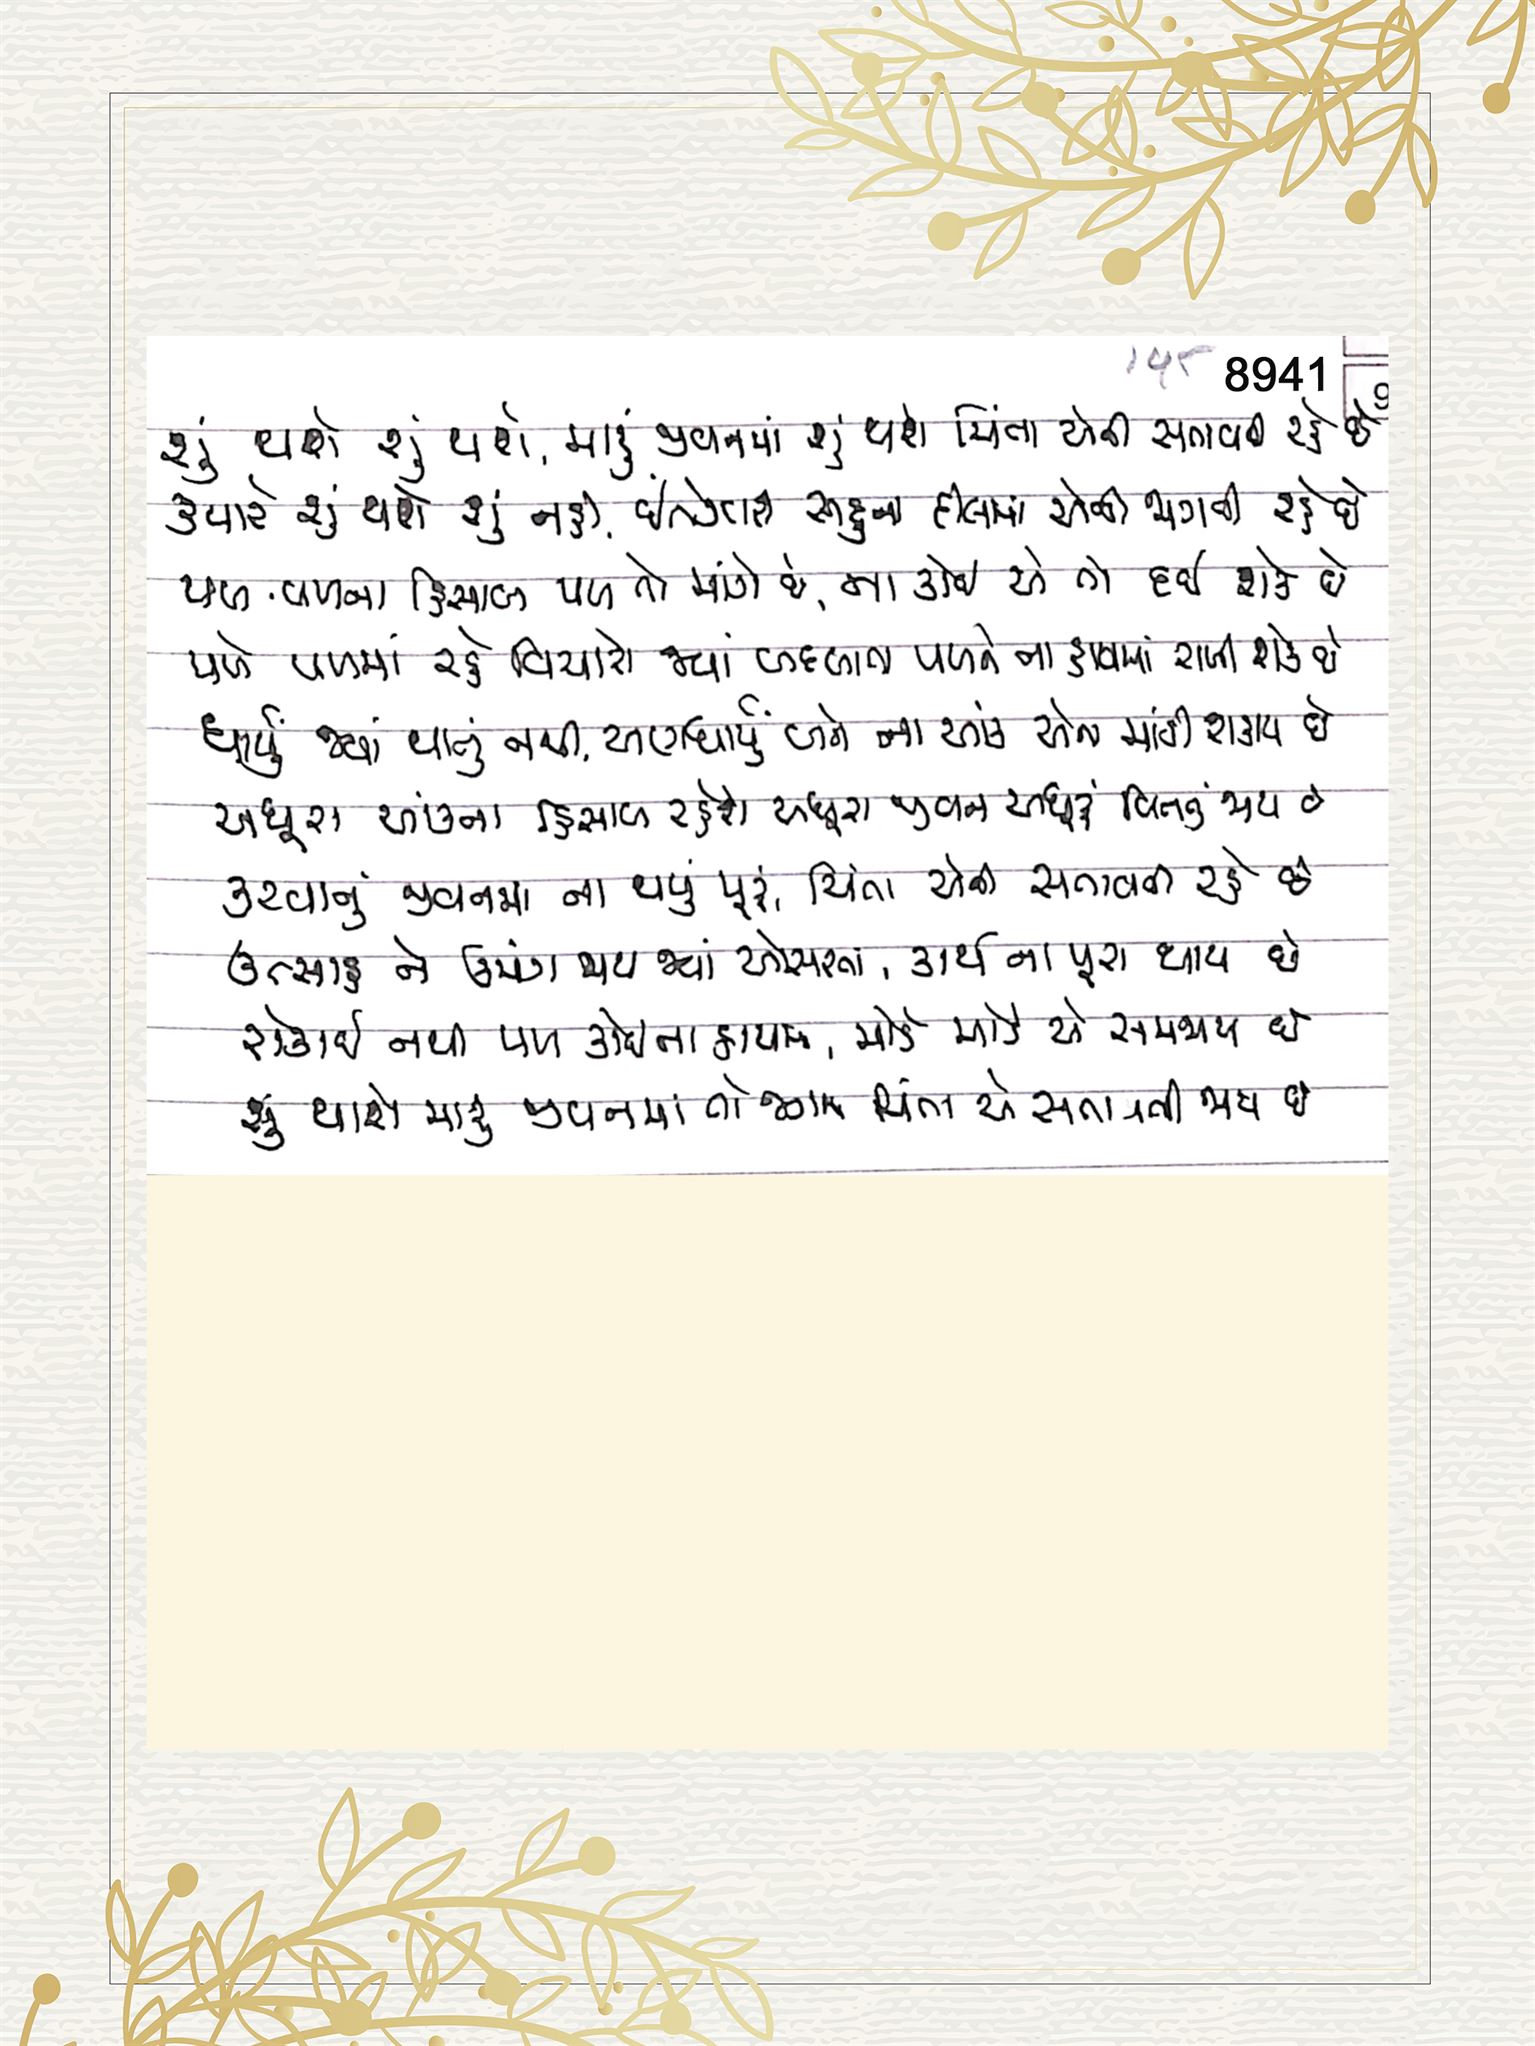 8941
શું થાશે શું થશે, મારું જીવનમાં શું થશે ચિંતા એવી સતાવતી રહે છે
ક્યારે શું થાશે શું નહીં, ઇંતેજારી સહુના દીલમાં એવી જાગતી રહે છે
પળ પળના હિસાબ પળ તો માંગે છે, ના કોઈ એ તો દઈ શકે છે
પળે પળમાં રહે વિચારો જ્યાં બદલાતા પળને ના હાથમાં રાખી શકે છે
ધાર્યું જ્યાં થાતું નથી, અણધાર્યું બને ના આંક એના માંડી શકાય છે
અધૂરા આંકના હિસાબ રહેશે અધૂરા જીવન અધૂરું વિતતું જાય છે
કરવાનું જીવનમાં ના થયું પૂરું, ચિંતા એવી સતાવતી રહે છે
ઉત્સાહ ને ઉમંગ જાય જ્યાં ઓસરતા, કાર્ય ના પૂરા થાય છે
રોકાઈ નથી પળ કોઈના કાજે, મોડે મોડે એ સમજાય છે
શું થાશે મારું જીવનમાં તો ચિંતા એ સતાવતી જાય છે